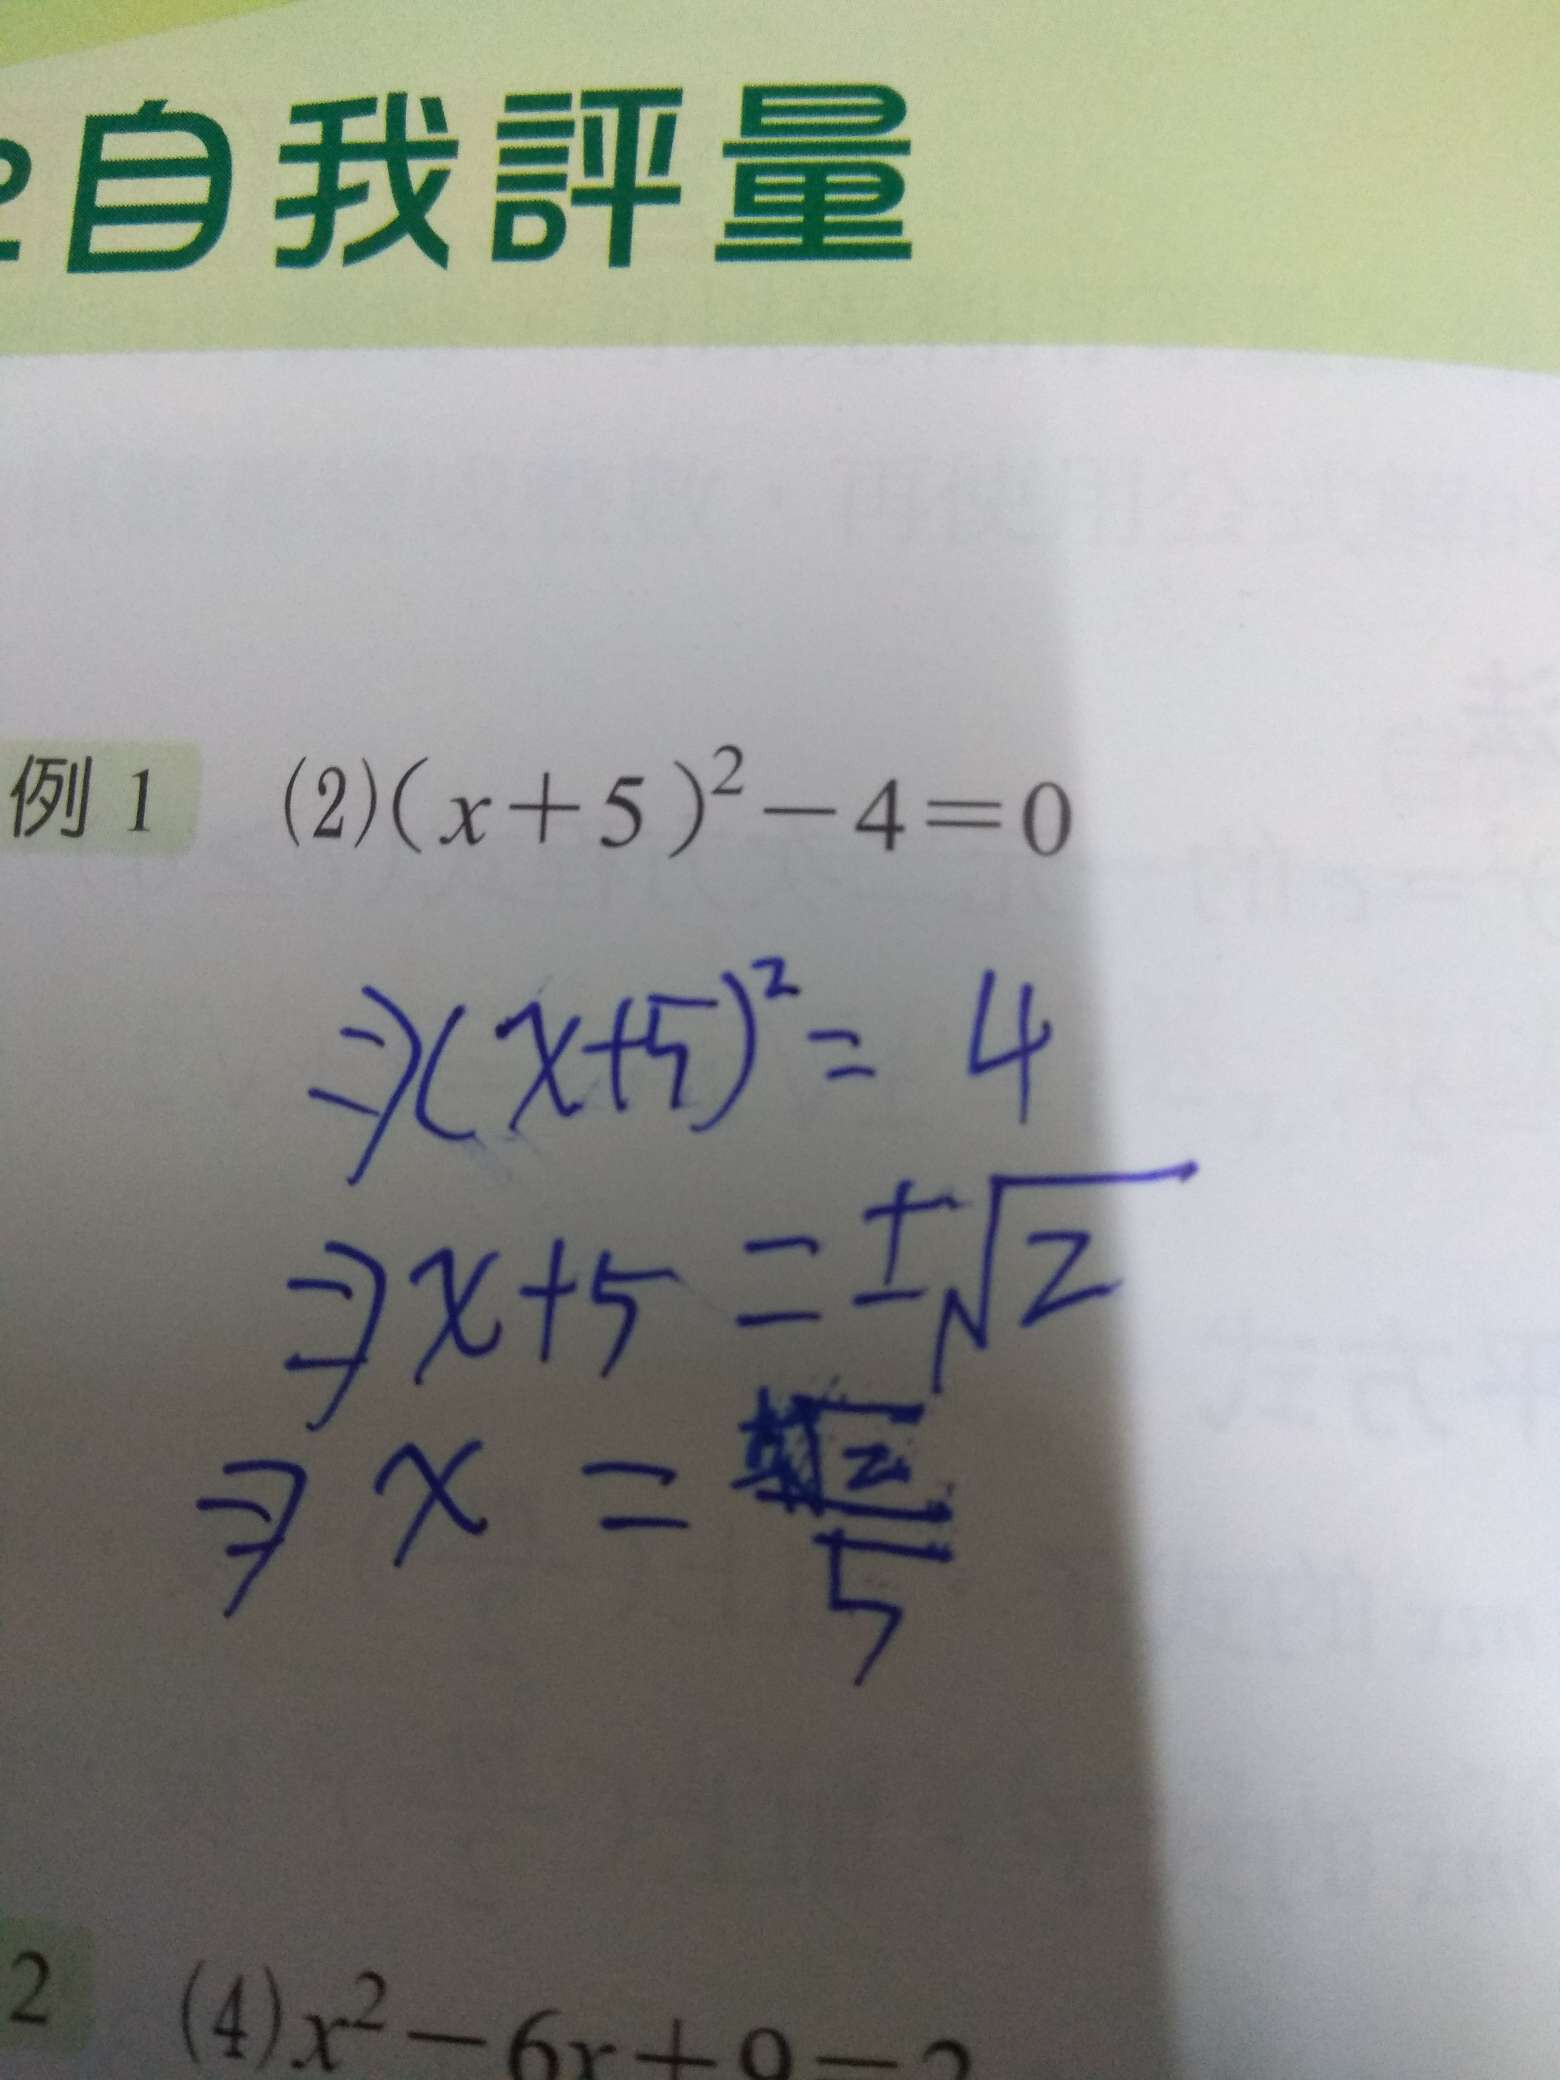 2自我評量
例1 (2)(x+5)²-4=0
⇒(x+5)²=4
⇒x+5=±√2
⇒x=√2/5
2 (4)x²-6x+9=2